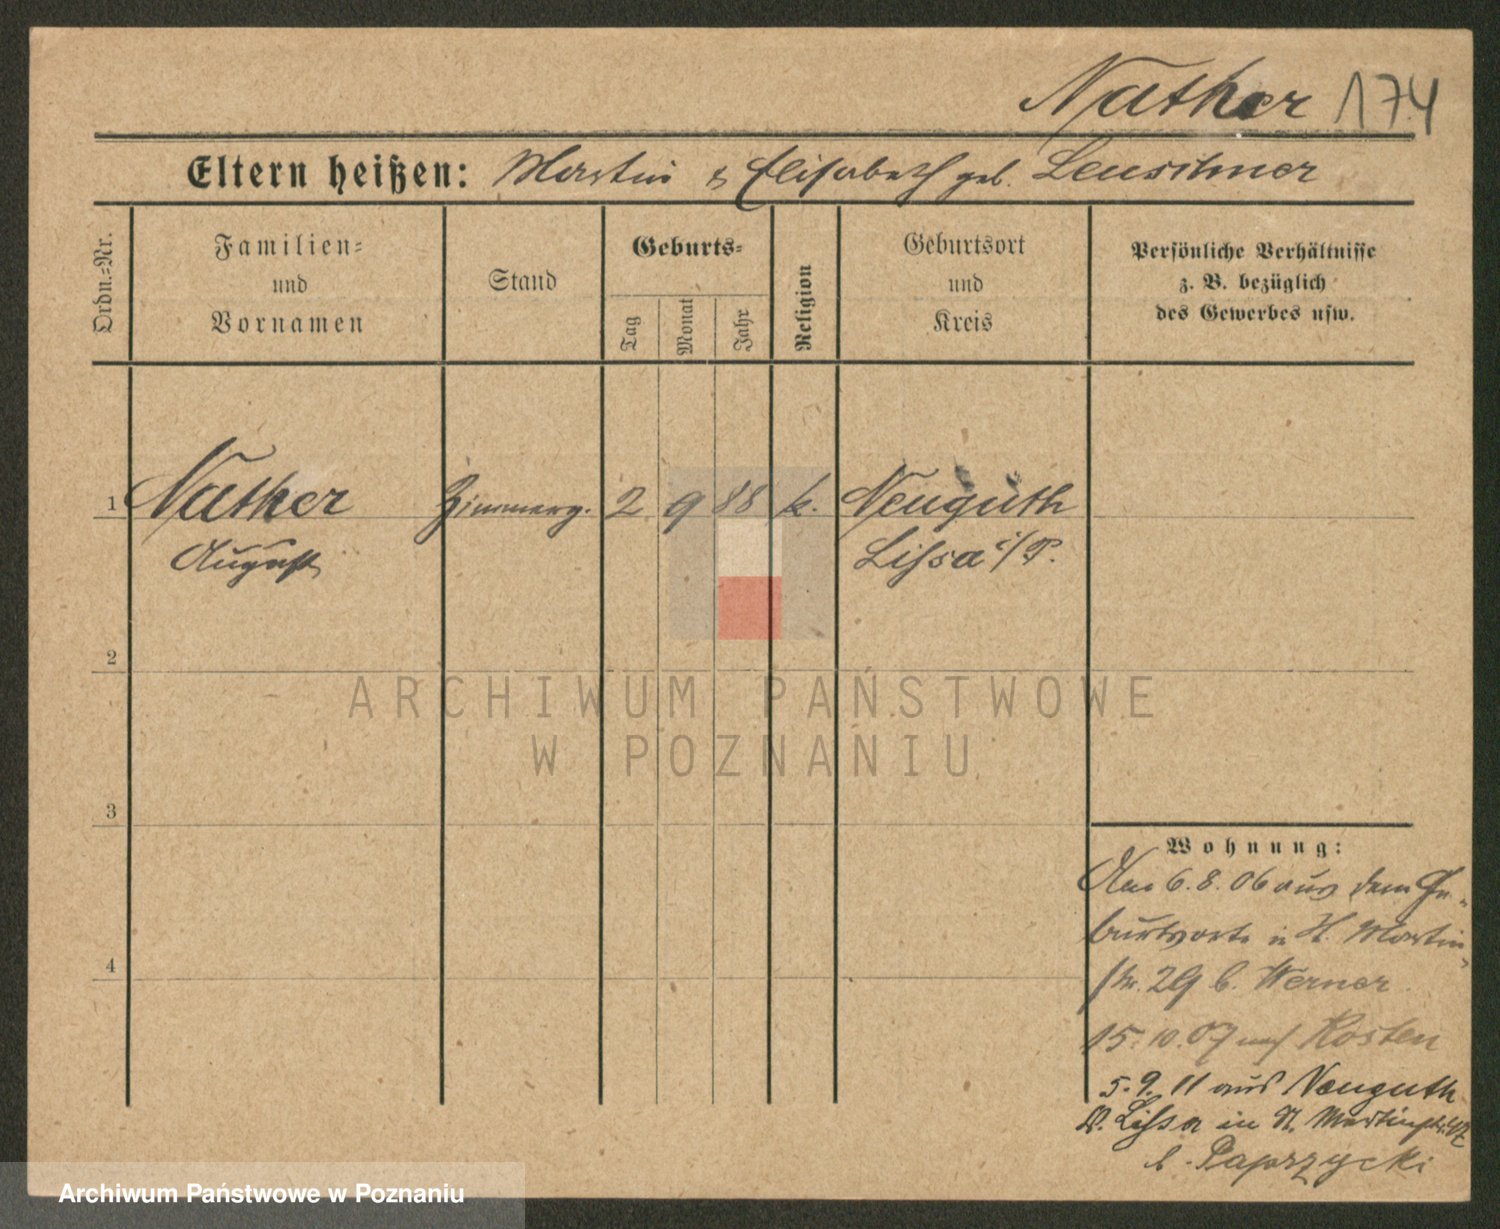 Nather 174
Eltern heißen: Martin & Elisabeth geb. Leuschner
Ordn.=Nr.
Familien=
und
Vornamen
Stand
Geburts=
Tag
Monat
Jahr
Religion
Geburtsort
und
Kreis
Persönliche Verhältnisse
z. B. bezüglich
des Gewerbes usw.
1 Nather Zimmerg. 2 9 88 k. Neuguth
August Lissa i/P.
2
3
4
ARCHIWUM PAŃSTWOWE
W POZNANIU
Wohnung:
Am 6.8.06 aus dem Ge-
burtsorte in St. Martin-
str. 29 b. Werner.
15.10.07 nach Kosten
5.9.11 aus Neuguth
Kr. Lissa in St. Martinstr.
b. Paprzycki
Archiwum Państwowe w Poznaniu